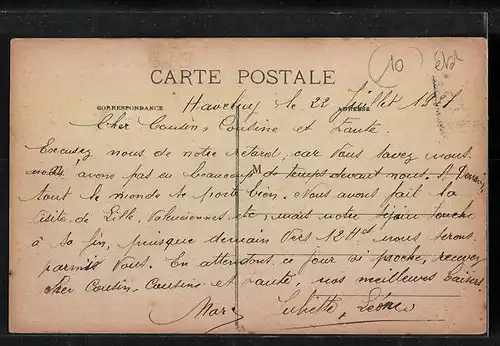 10
CARTE POSTALE
CORRESPONDANCE
ADRESSE
Haveluy le 22 Juillet 1921
Cher Cousin, Cousine et tante.
Excusez nous de notre retard, car vous savez nous
n'avons pas eu beaucoup de temps devant nous. A
tout le monde se porte bien. Nous avons fait la
visite de Lille, Valenciennes etc mais notre séjour touche
à sa fin, puisque demain vers 12 H nous serons
parmis vous. En attendant ce jour si proche, recevez
cher Cousin, Cousine et tante, nos meilleurs baisers.
Marc Juliette, Léonce
M